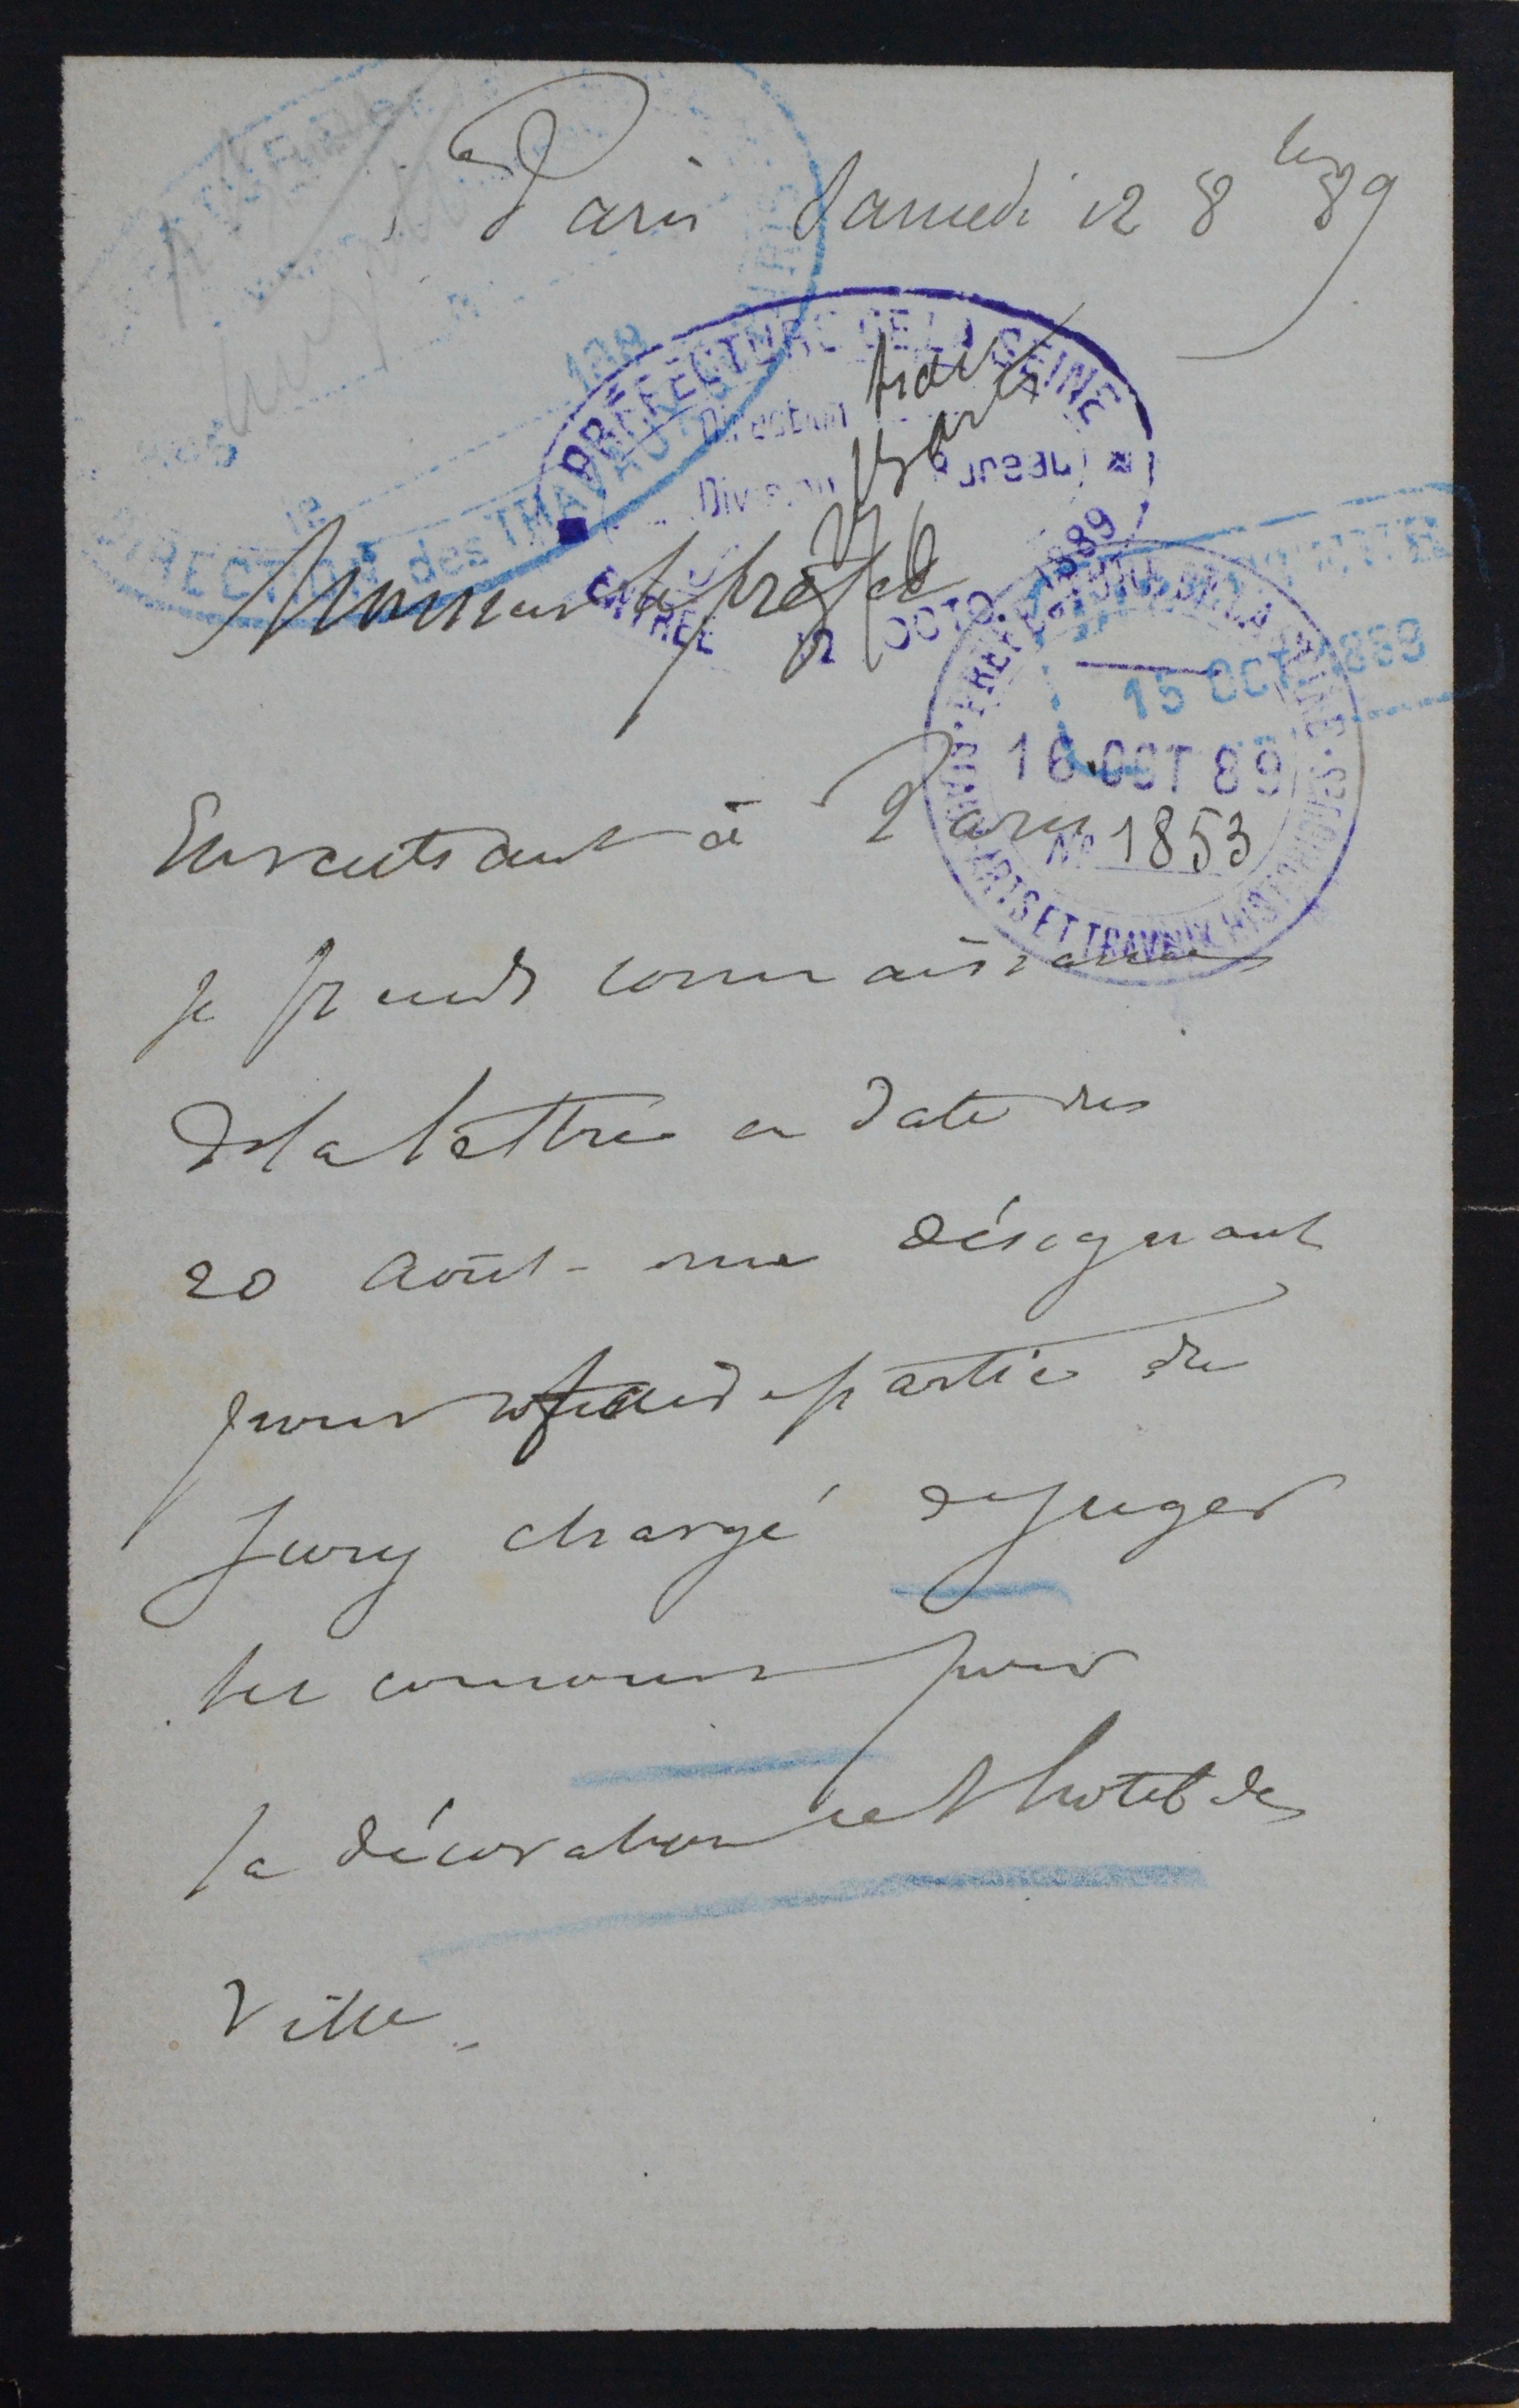 Paris Samedi 12 8bre 89
PRÉFECTURE DE LA SEINE
Direction trav
Division Bureau
ENTRÉE 12 OCTO 1889
DIRECTION des TRAVAUX
le 188
Monsieur le préfet
15 OCT. 1889
PRÉFECTURE DE LA SEINE
16 OCT 89
No 1853
BEAUX-ARTS ET TRAVAUX HISTORIQUES
En rentrant à Paris
je prends connaissance
de la lettre en date du
20 Août - me désignant
pour faire partie du
Jury chargé de juger
les concours pour
la décoration de l'hotel de
Ville.